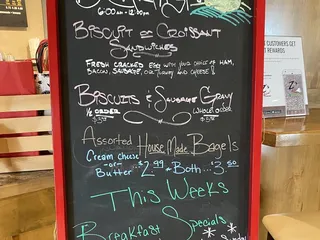 6:00am - 12:00pm
Biscuit or Croissant
Sandwiches
Fresh cracked egg with your choice of ham,
bacon, sausage, or turkey and cheese!
Biscuits & Sausage Gravy
1/2 order
Whole order
Assorted House Made Bagels
Cream cheese
-or-
Butter $2.99 or Both... $3.50
This Weeks
Breakfast Specials
CUSTOMERS GET
REWARDS